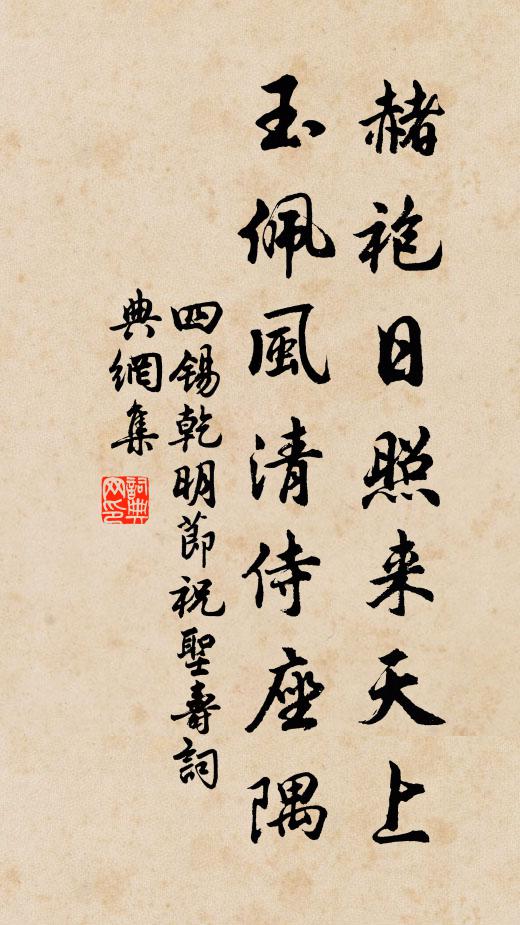 赭袍日照来天上
玉佩風清侍座隅
四锡乾明節祝聖壽詞
典網集
詞典网印